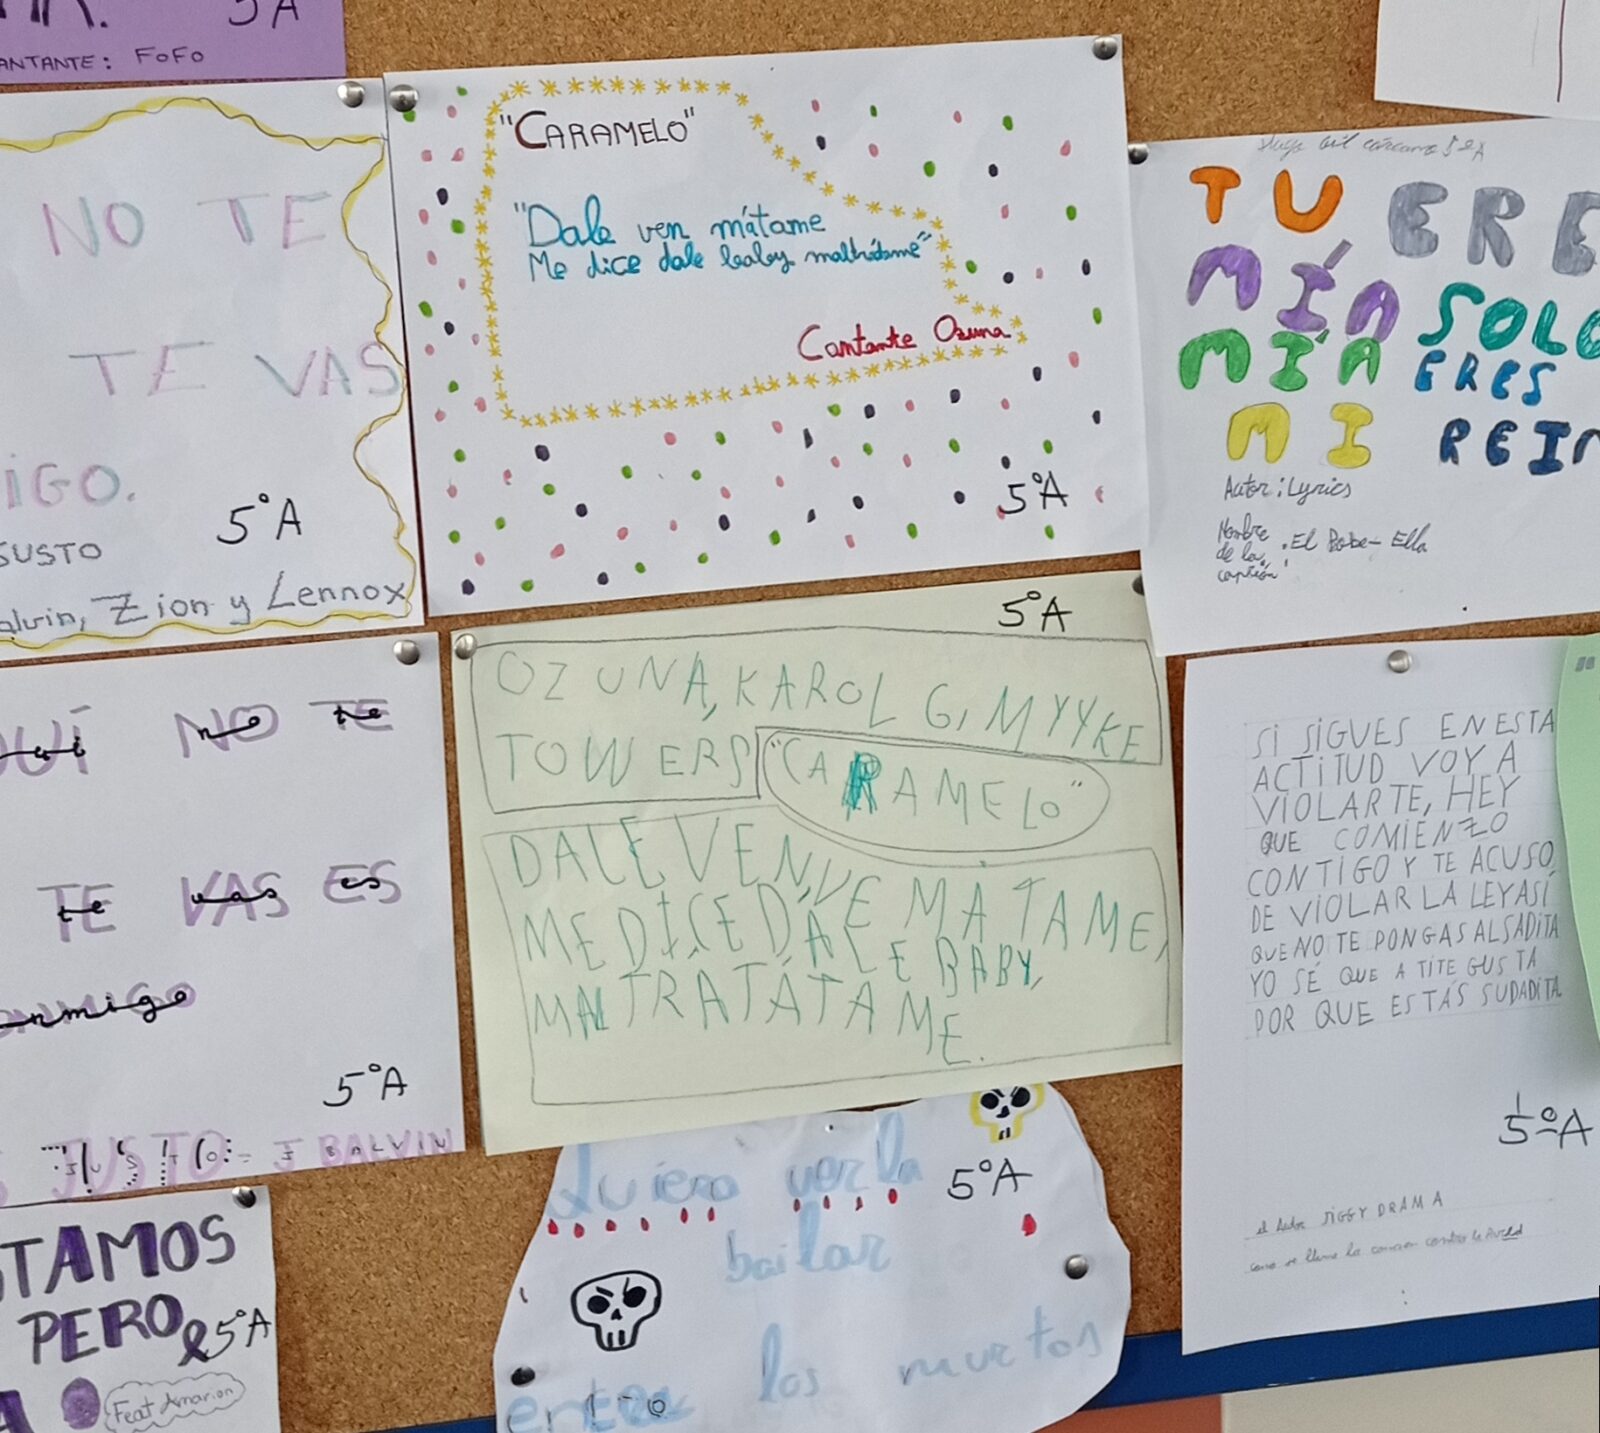 5ºA
CANTANTE: FOFO
NO TE
TE VAS
IGO.
5ºA
GUSTO
alvin, Zion y Lennox
"CARAMELO"
"Dale ven mátame
Me dice dale baby maltrátame"
Cantante Ozuna
5ºA
5ºA
TU ERE
MÍA SOLO
MÍA ERES
MI REIN
Autor: Lyrics
Nombre
de la
canción
: El Bobe - Ella
no te
te vas es
onmigo
5ºA
JUSTO = J BALVIN
5ºA
OZUNA, KAROL G, MYYKE
TOWERS
"CARAMELO"
DALE VEN, VE MÁTAME,
ME DÍCE DÁLE BABY,
MALTRATÁTAME.
SI SIGUES EN ESTA
ACTITUD VOY A
VIOLARTE, HEY
QUE COMIENZO
CONTIGO Y TE ACUSO
DE VIOLAR LA LEY ASÍ
QUE NO TE PONGAS ALSADITA
YO SÉ QUE A TITE GUSTA
POR QUE ESTÁS SUDADITA
5ºA
el Autor JIGGY DRAMA
como se llama la cancion contra la pared
TAMOS
PERO
5ºA
Feat Amarion
Quiero ver la
5ºA
bailar
entre los muertos